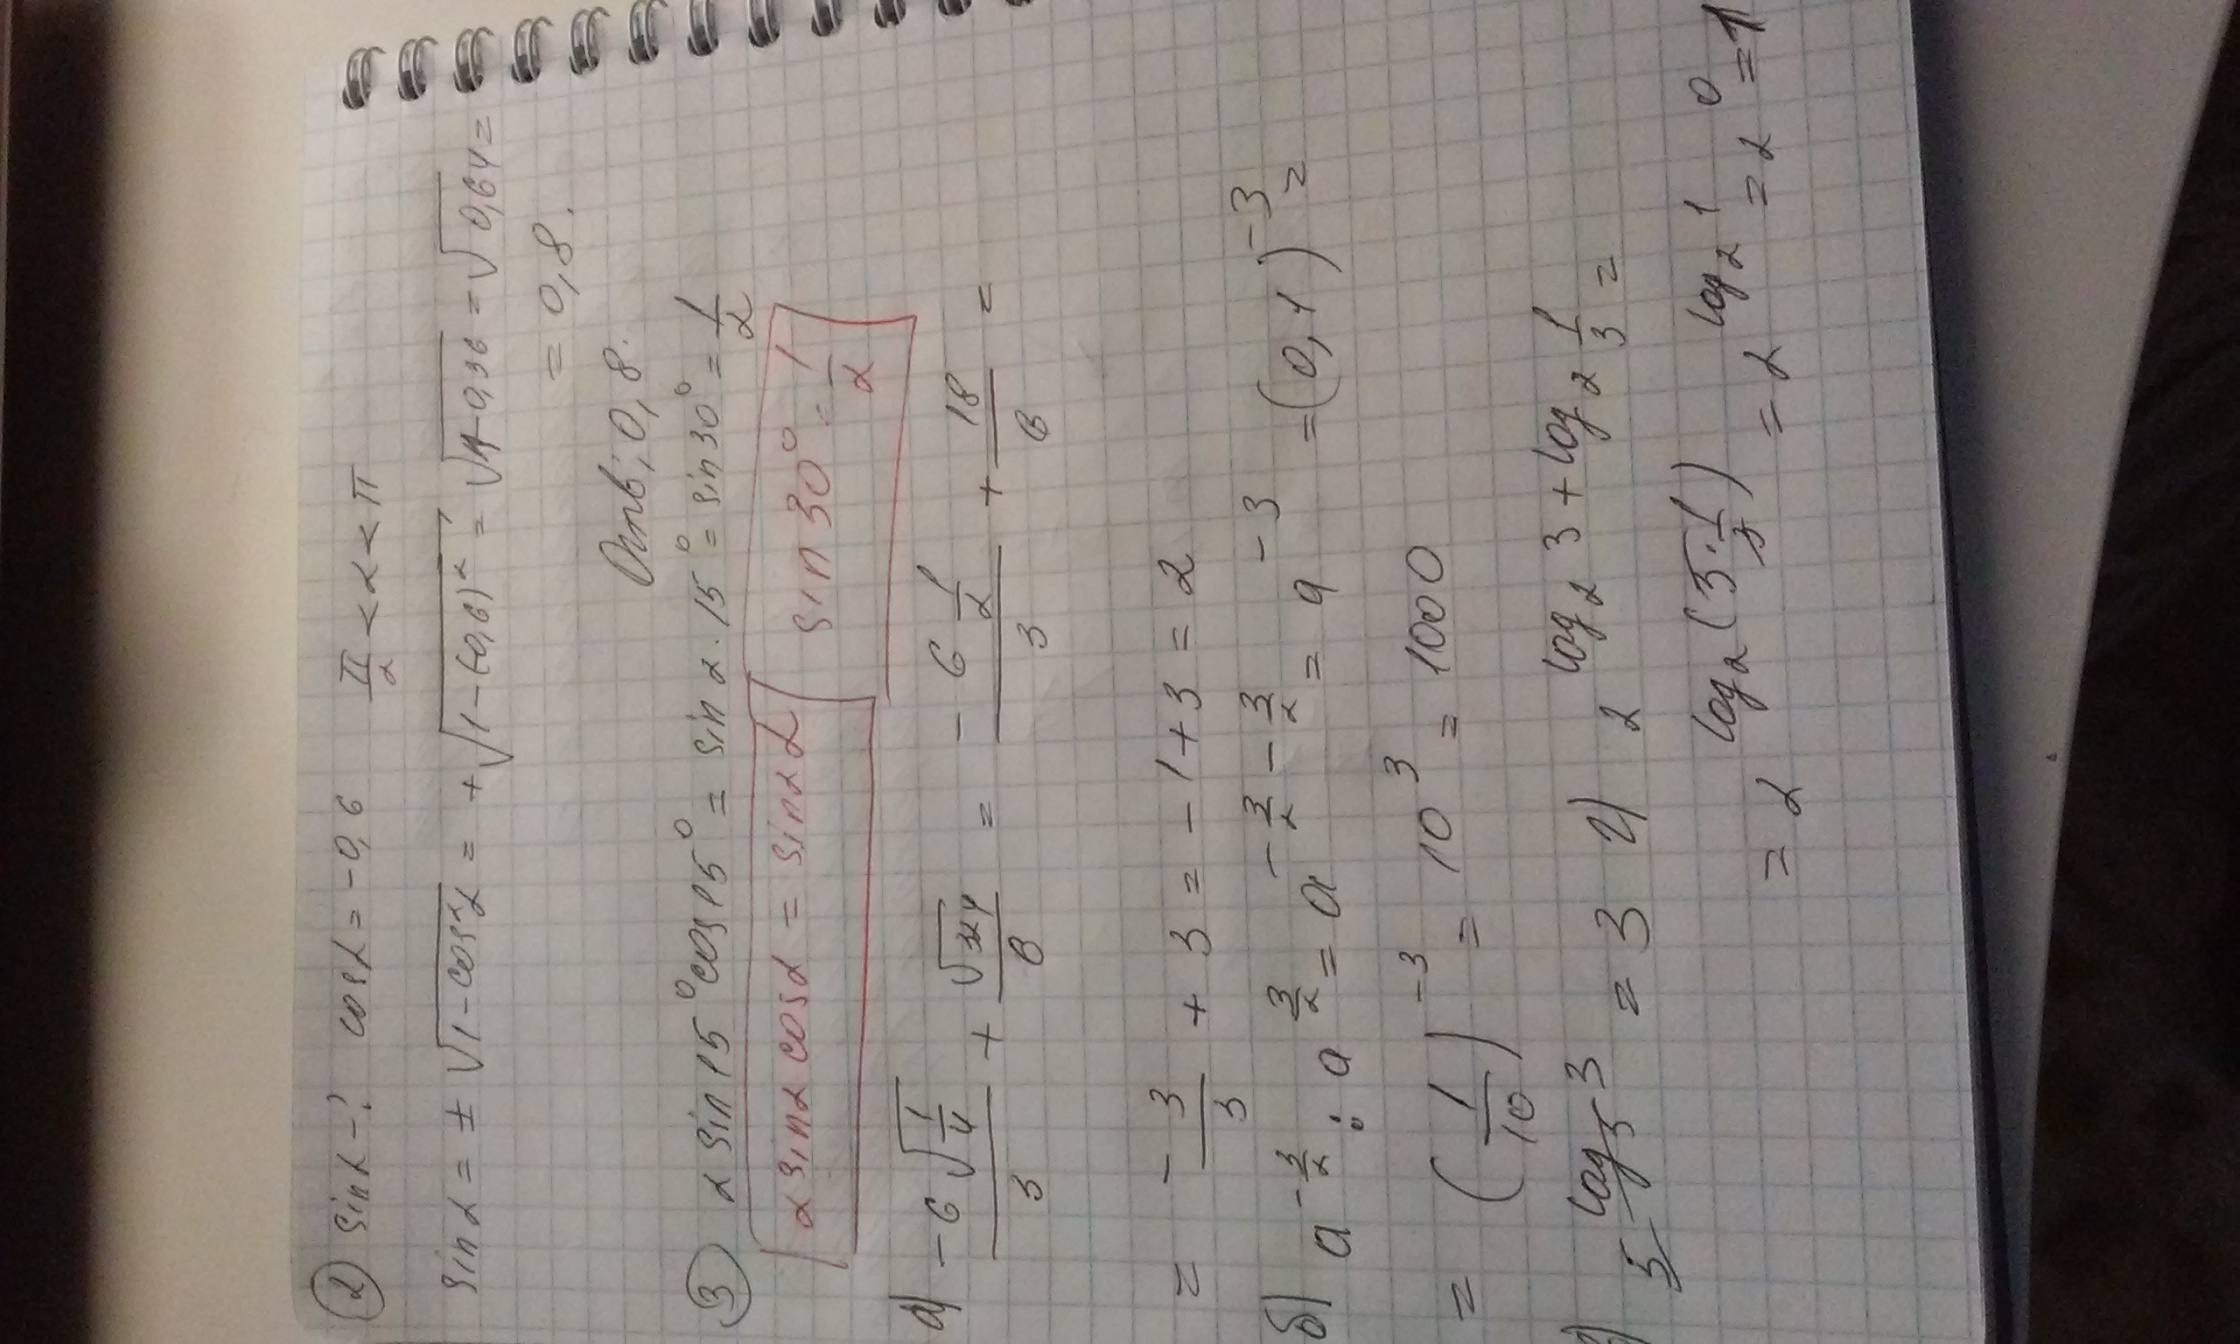 ② sin α - ? cos α = -0,6 π/2 < α < π
sin α = ± √(1 - cos²α) = + √(1 - (-0,6)²) = √(1 - 0,36) = √0,64 =
= 0,8.
Ответ: 0,8.
③ 2 sin 15° cos 15° = sin 2 · 15° = sin 30° = 1/2
2 sin α cos α = sin 2α sin 30° = 1/2
а) -6√(1/4)/3 + √324/6 = - (6 1/2)/3 + 18/6 =
= - 3/3 + 3 = -1 + 3 = 2
б) a^(-3/2) : a^(3/2) = a^(-3/2 - 3/2) = a^(-3) = (0,1)^(-3) =
= (1/10)^(-3) = 10^3 = 1000
в) 5^(log₅ 3) = 3 г) 2^(log₂ 3 + log₂ 1/3) =
= 2^(log₂ (3 · 1/3)) = 2^(log₂ 1) = 2^0 = 1